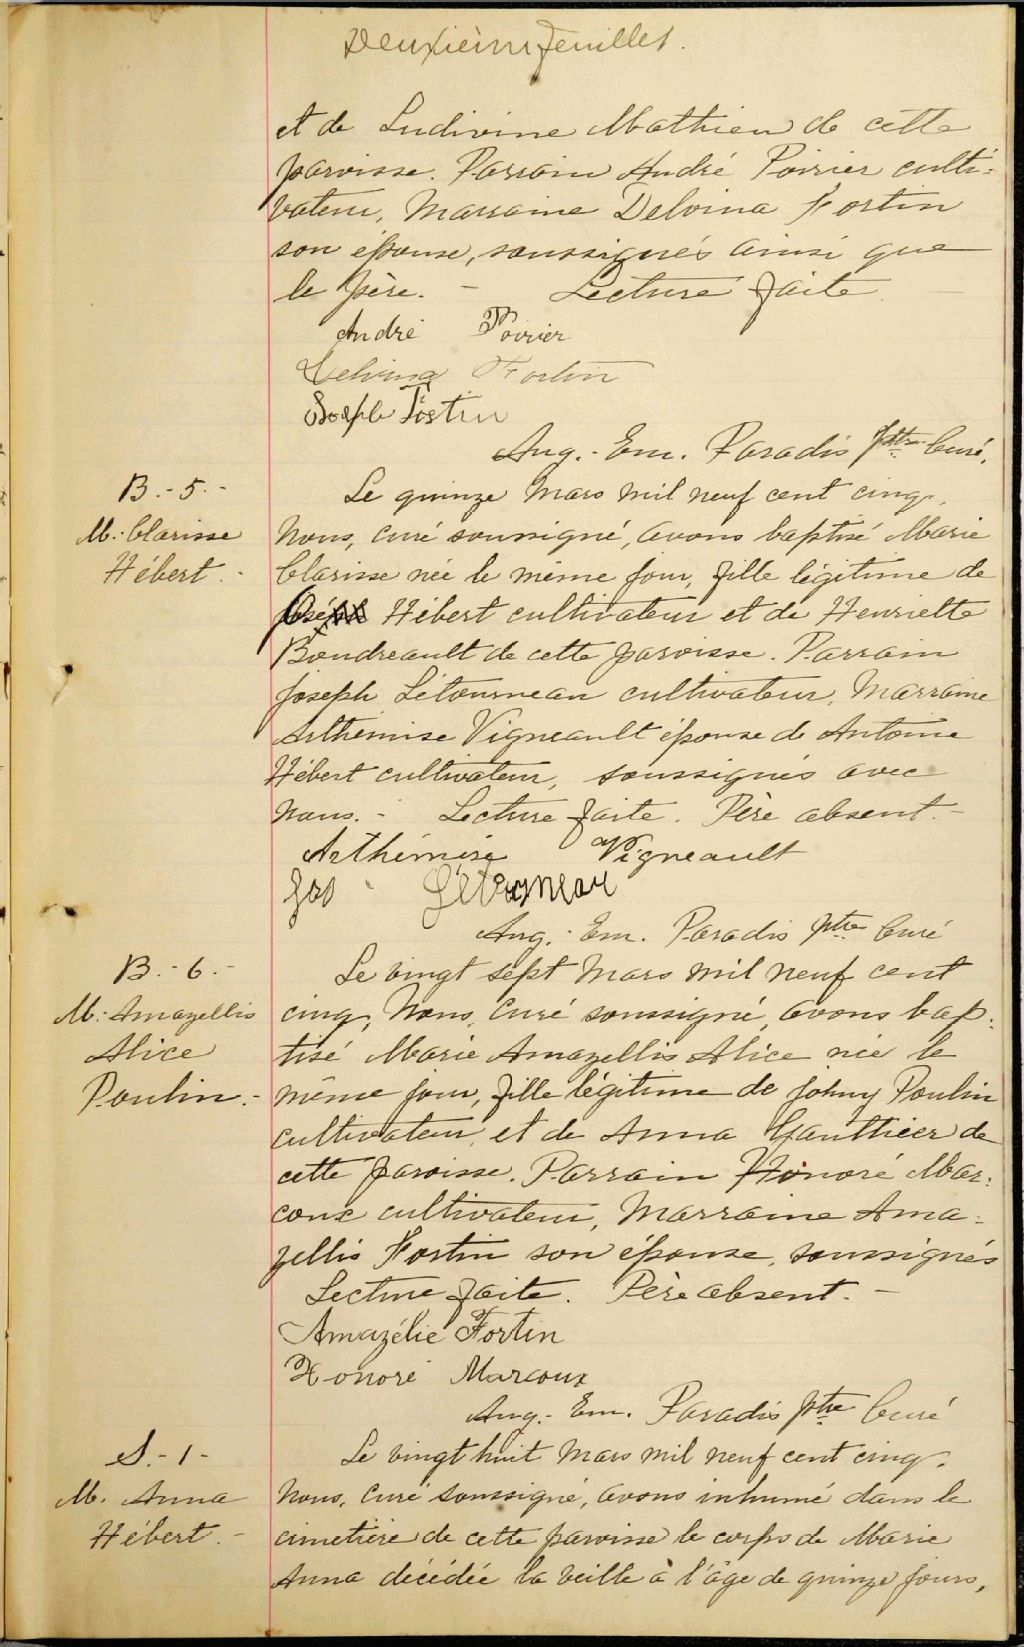 Deuxième feuillet.
et de Ludivine Mathieu de cette
paroisse. Parrain André Poirier culti-
vateur, Marraine Delvina Fortin
son épouse, soussignés ainsi que
le père. - Lecture faite
André Poirier
Delvina Fortin
Joseph Fortin
Aug.- Em. Paradis Ptre Curé.
B.-5.-
M.-Clarisse
Hébert.-
Le quinze Mars mil neuf cent cinq,
Nous, curé soussigné, avons baptisé Marie
Clarisse née le même jour, fille légitime de
Hébert cultivateur et de Henriette
Boudreault de cette paroisse. Parrain
Joseph Létourneau cultivateur, Marraine
Arthémise Vigneault épouse de Antoine
Hébert cultivateur, soussignés avec
nous.- Lecture faite. Père absent.-
Arthémise Vigneault
Jos Létourneau
Aug.- Em. Paradis Ptre Curé
B.-6.-
M.-Amazellis
Alice
Poulin.-
Le vingt sept Mars mil neuf cent
cinq, Nous, Curé soussigné, avons bap-
tisé Marie Amazellis Alice née le
même jour, fille légitime de Johny Poulin
cultivateur, et de Anna Gauthier de
cette paroisse. Parrain Honoré Mar-
coux cultivateur, Marraine Ama-
zellis Fortin son épouse, soussignés
Lecture faite. Père absent.-
Amazélie Fortin
Honoré Marcoux
Aug.- Em. Paradis Ptre Curé
S.-1-
M. Anna
Hébert.-
Le vingt huit Mars mil neuf cent cinq,
Nous, Curé soussigné, avons inhumé dans le
cimetière de cette paroisse le corps de Marie
Anna décédée la veille à l'âge de quinze jours,